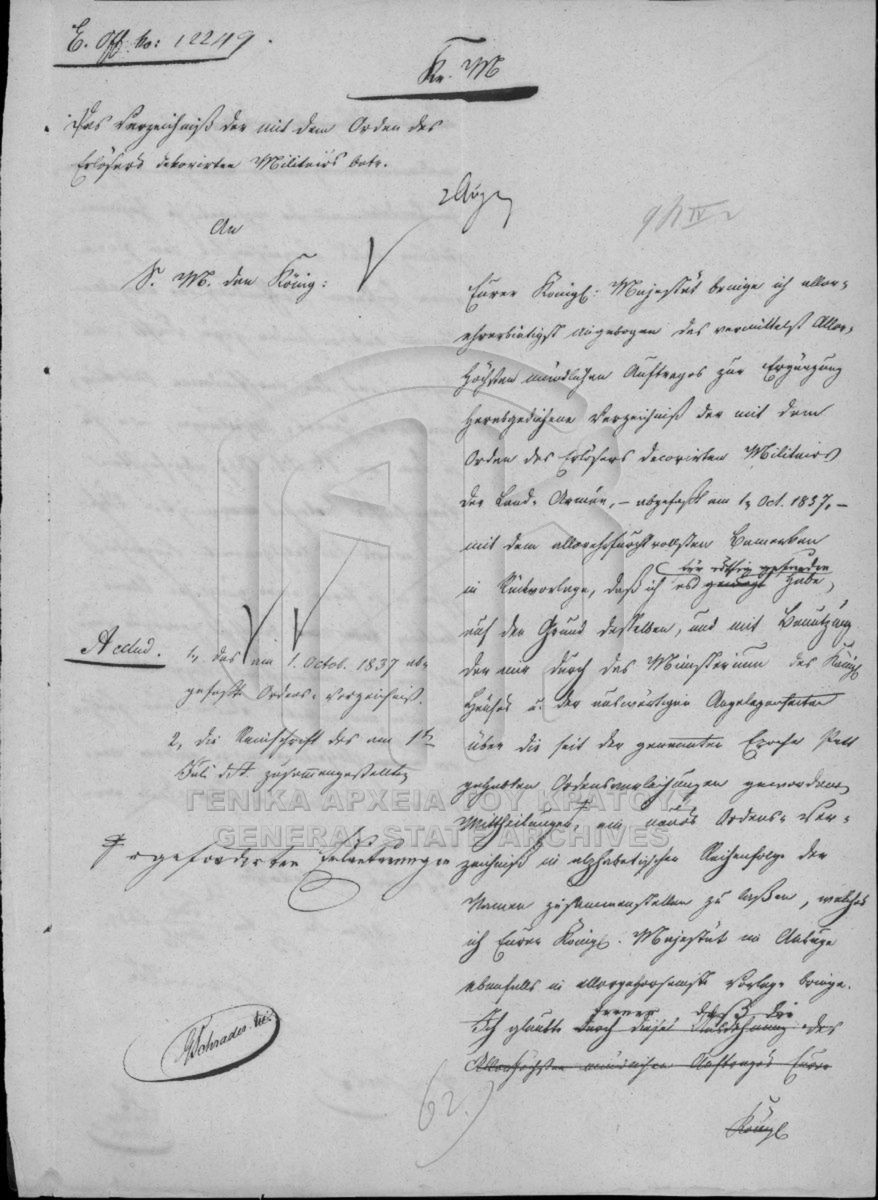 E. Off. No: 12249.
Kr. M
Das Verzeichniß der mit dem Orden des
Erlösers dekorirten Militairs betr.
An
S. M. den König:
Eurer Königl: Majestät bringe ich aller-
ehrerbietigst angebogen das vermittelst Aller-
höchsten mündlichen Auftrages zur Ergänzung
herabgediehene Verzeichniß der mit dem
Orden des Erlösers decorirten Militairs
der Land-Armée, – abgefaßt am 1. Oct. 1837, –
mit dem allerehrfurchtvollsten Bemerken
für nöthig gefunden
in Rückvorlage, daß ich es habe,
auf den Grund desselben, und mit Benutzung
der mir durch das Ministerium des Königl
Hauses u. der auswärtigen Angelegenheiten
über die seit der genannten Epoche statt
gehabten Ordensverleihungen gewordenen
Mittheilungen, ein neues Ordens-Ver-
zeichniß in alphabetischer Reihenfolge der
Namen zusammenstellen zu laßen, welches
ich Eurer Königl. Majestät in Anlage
ebenfalls in allergehorsamste Vorlage bringe.
ferner, daß die
Ich glaubte durch diese Ausdehnung des
Allerhöchsten mündlichen Auftrages Eurer
Königl
Acclud.
1, das am 1. Octob. 1837 ab-
gefaßte Ordens-Verzeichniß.
2, die Reinschrift des am 1ten
Juli d. J. zusammengestellten
geforderten
Schrader
62.)
ΓΕΝΙΚΑ ΑΡΧΕΙΑ ΤΟΥ ΚΡΑΤΟΥΣ
GENERAL STATE ARCHIVES